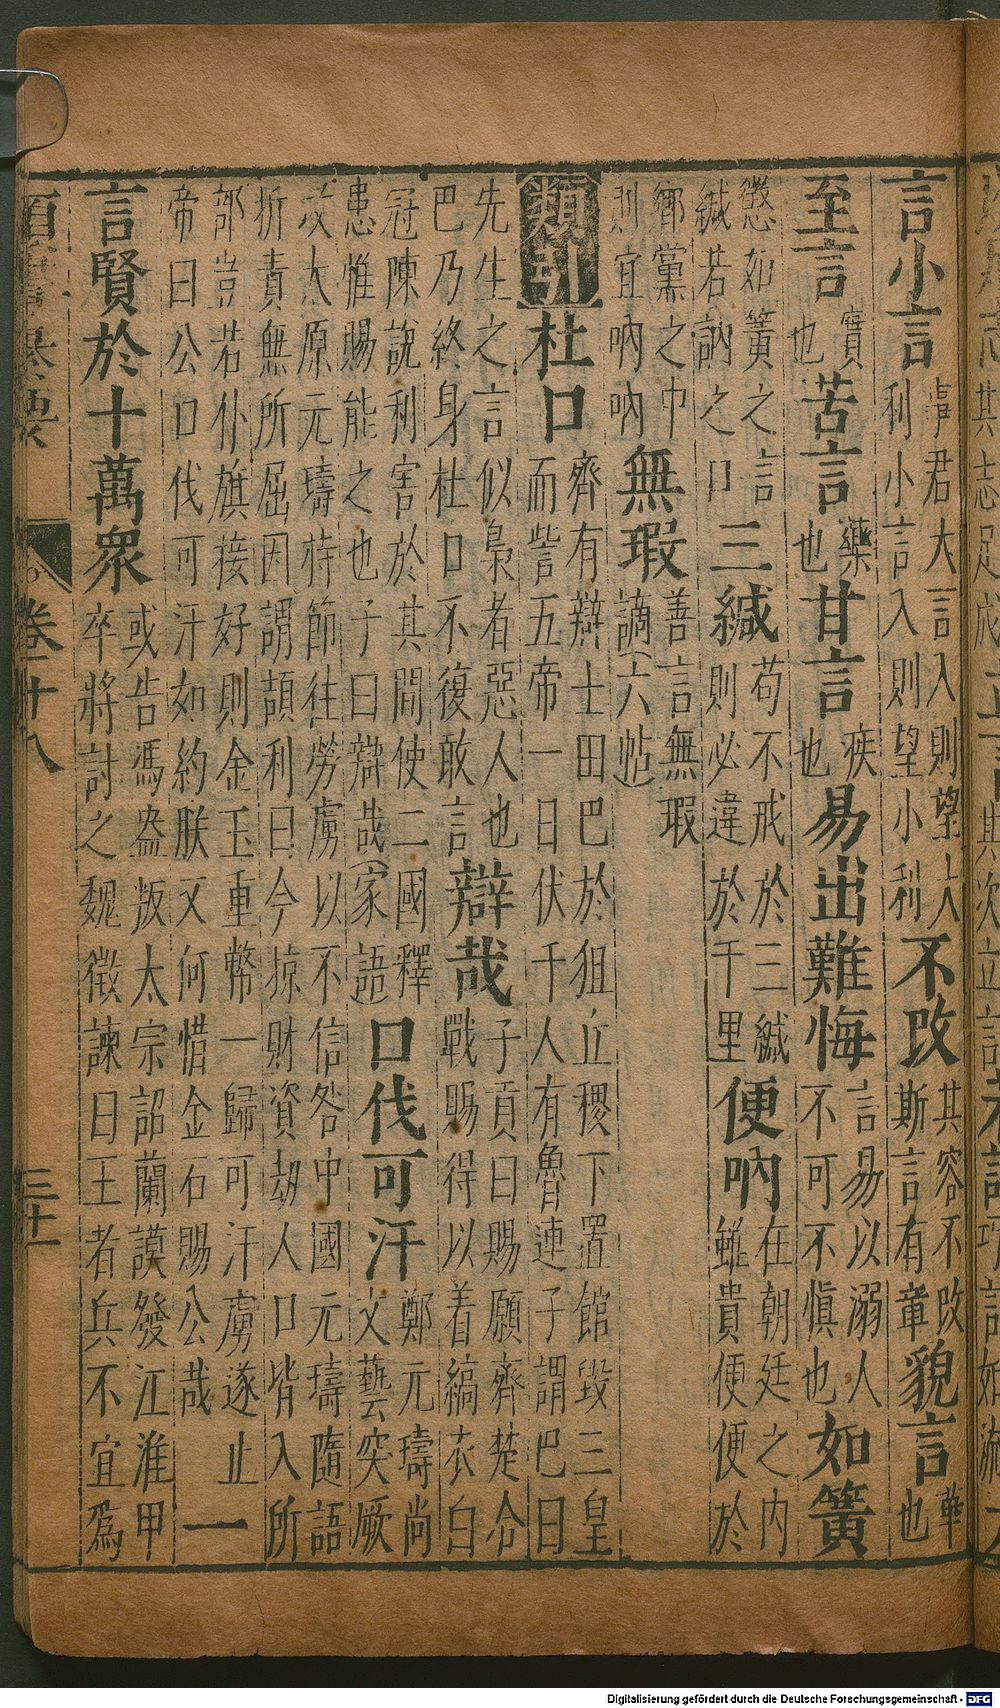 言小言事君大言入則望大利小言入則望小利不改其容不改斯言有章貌言華也
至言實也苦言藥也甘言疾也易出難悔言易以溺人不可不慎也如簧
懲如簧之言緘若訥之口三緘苟不戒於三緘則必違於千里便吶在朝廷之內雖貴便便於
鄉黨之中則宜吶吶無瑕善言無瑕謫(六帖
類引杜口齊有辯士田巴於狙丘稷下置館毀三皇而訾五帝一日伏千人有魯連子謂巴曰
先生之言似梟者惡人也巴乃終身杜口不復敢言辯哉子貢曰賜願齊楚合戰賜得以着縞衣白
冠陳說利害於其間使二國釋患惟賜能之也子曰辯哉(家語口伐可汗鄭元璹尚文藝突厥
攻太原元璹持節往勞虜以不信咎中國元璹隨語折責無所屈因謂頡利曰今掠財資劫人口皆入所
部豈若仆旗接好則金玉重幣一歸可汗虜遂止帝曰公口伐可汗如約朕又何惜金石賜公哉一
言賢於十萬衆或告馮盎叛太宗詔蘭謨發江淮甲卒將討之魏徵諫曰王者兵不宜爲
Digitalisierung gefördert durch die Deutsche Forschungsgemeinschaft - DFG